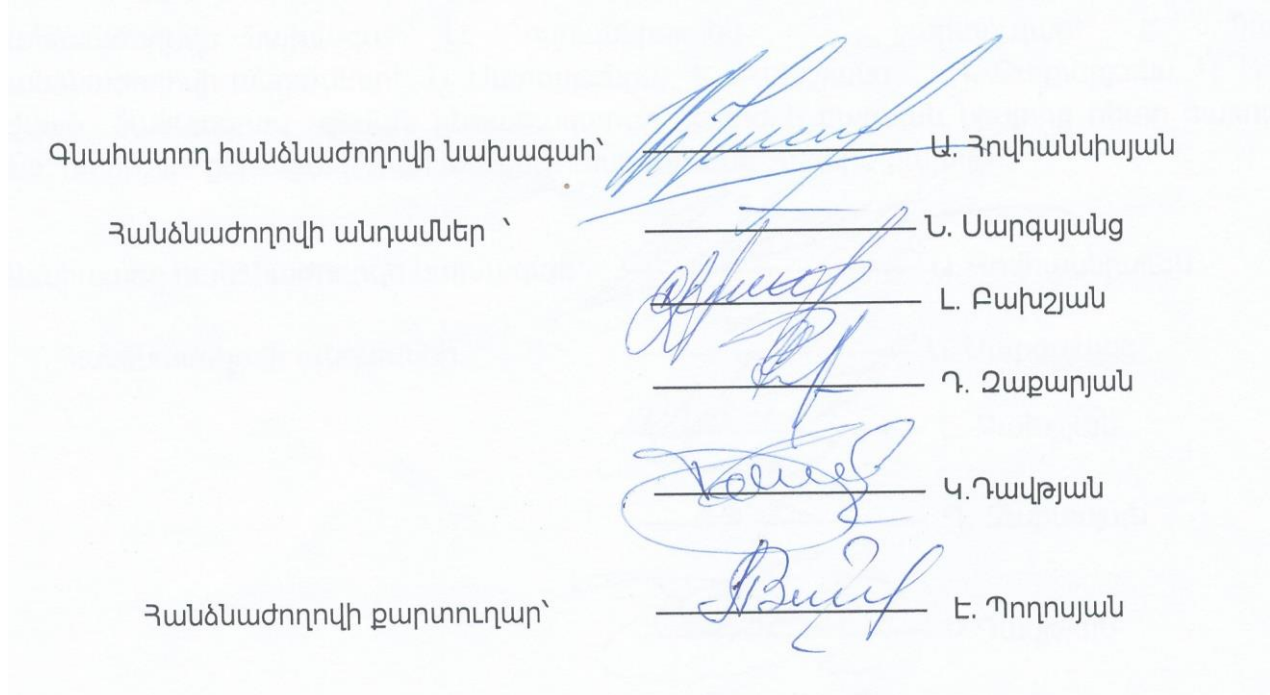 Գնահատող հանձնաժողովի նախագահ՝ Ա. Հովհաննիսյան
Հանձնաժողովի անդամներ ՝ Ն. Սարգսյանց
Լ. Բախշյան
Դ. Զաքարյան
Կ.Դավթյան
Հանձնաժողովի քարտուղար՝ Է. Պողոսյան